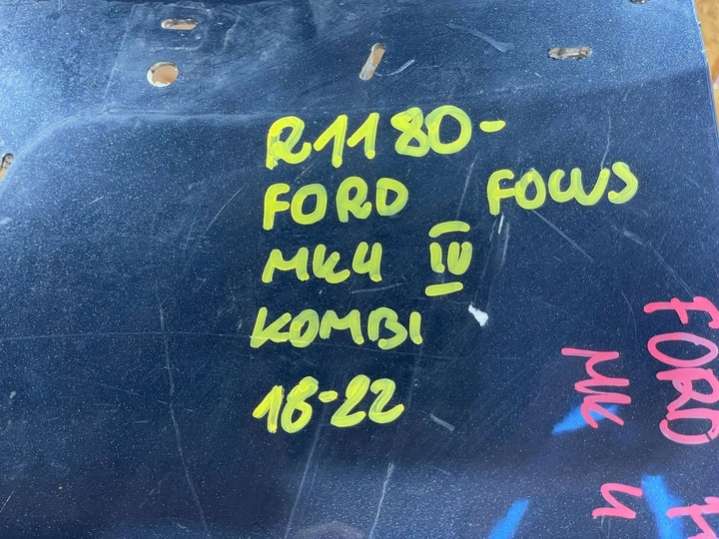 R1180-
FORD FOCUS
MK4 IV
KOMBI
18-22
FORD
MK 4